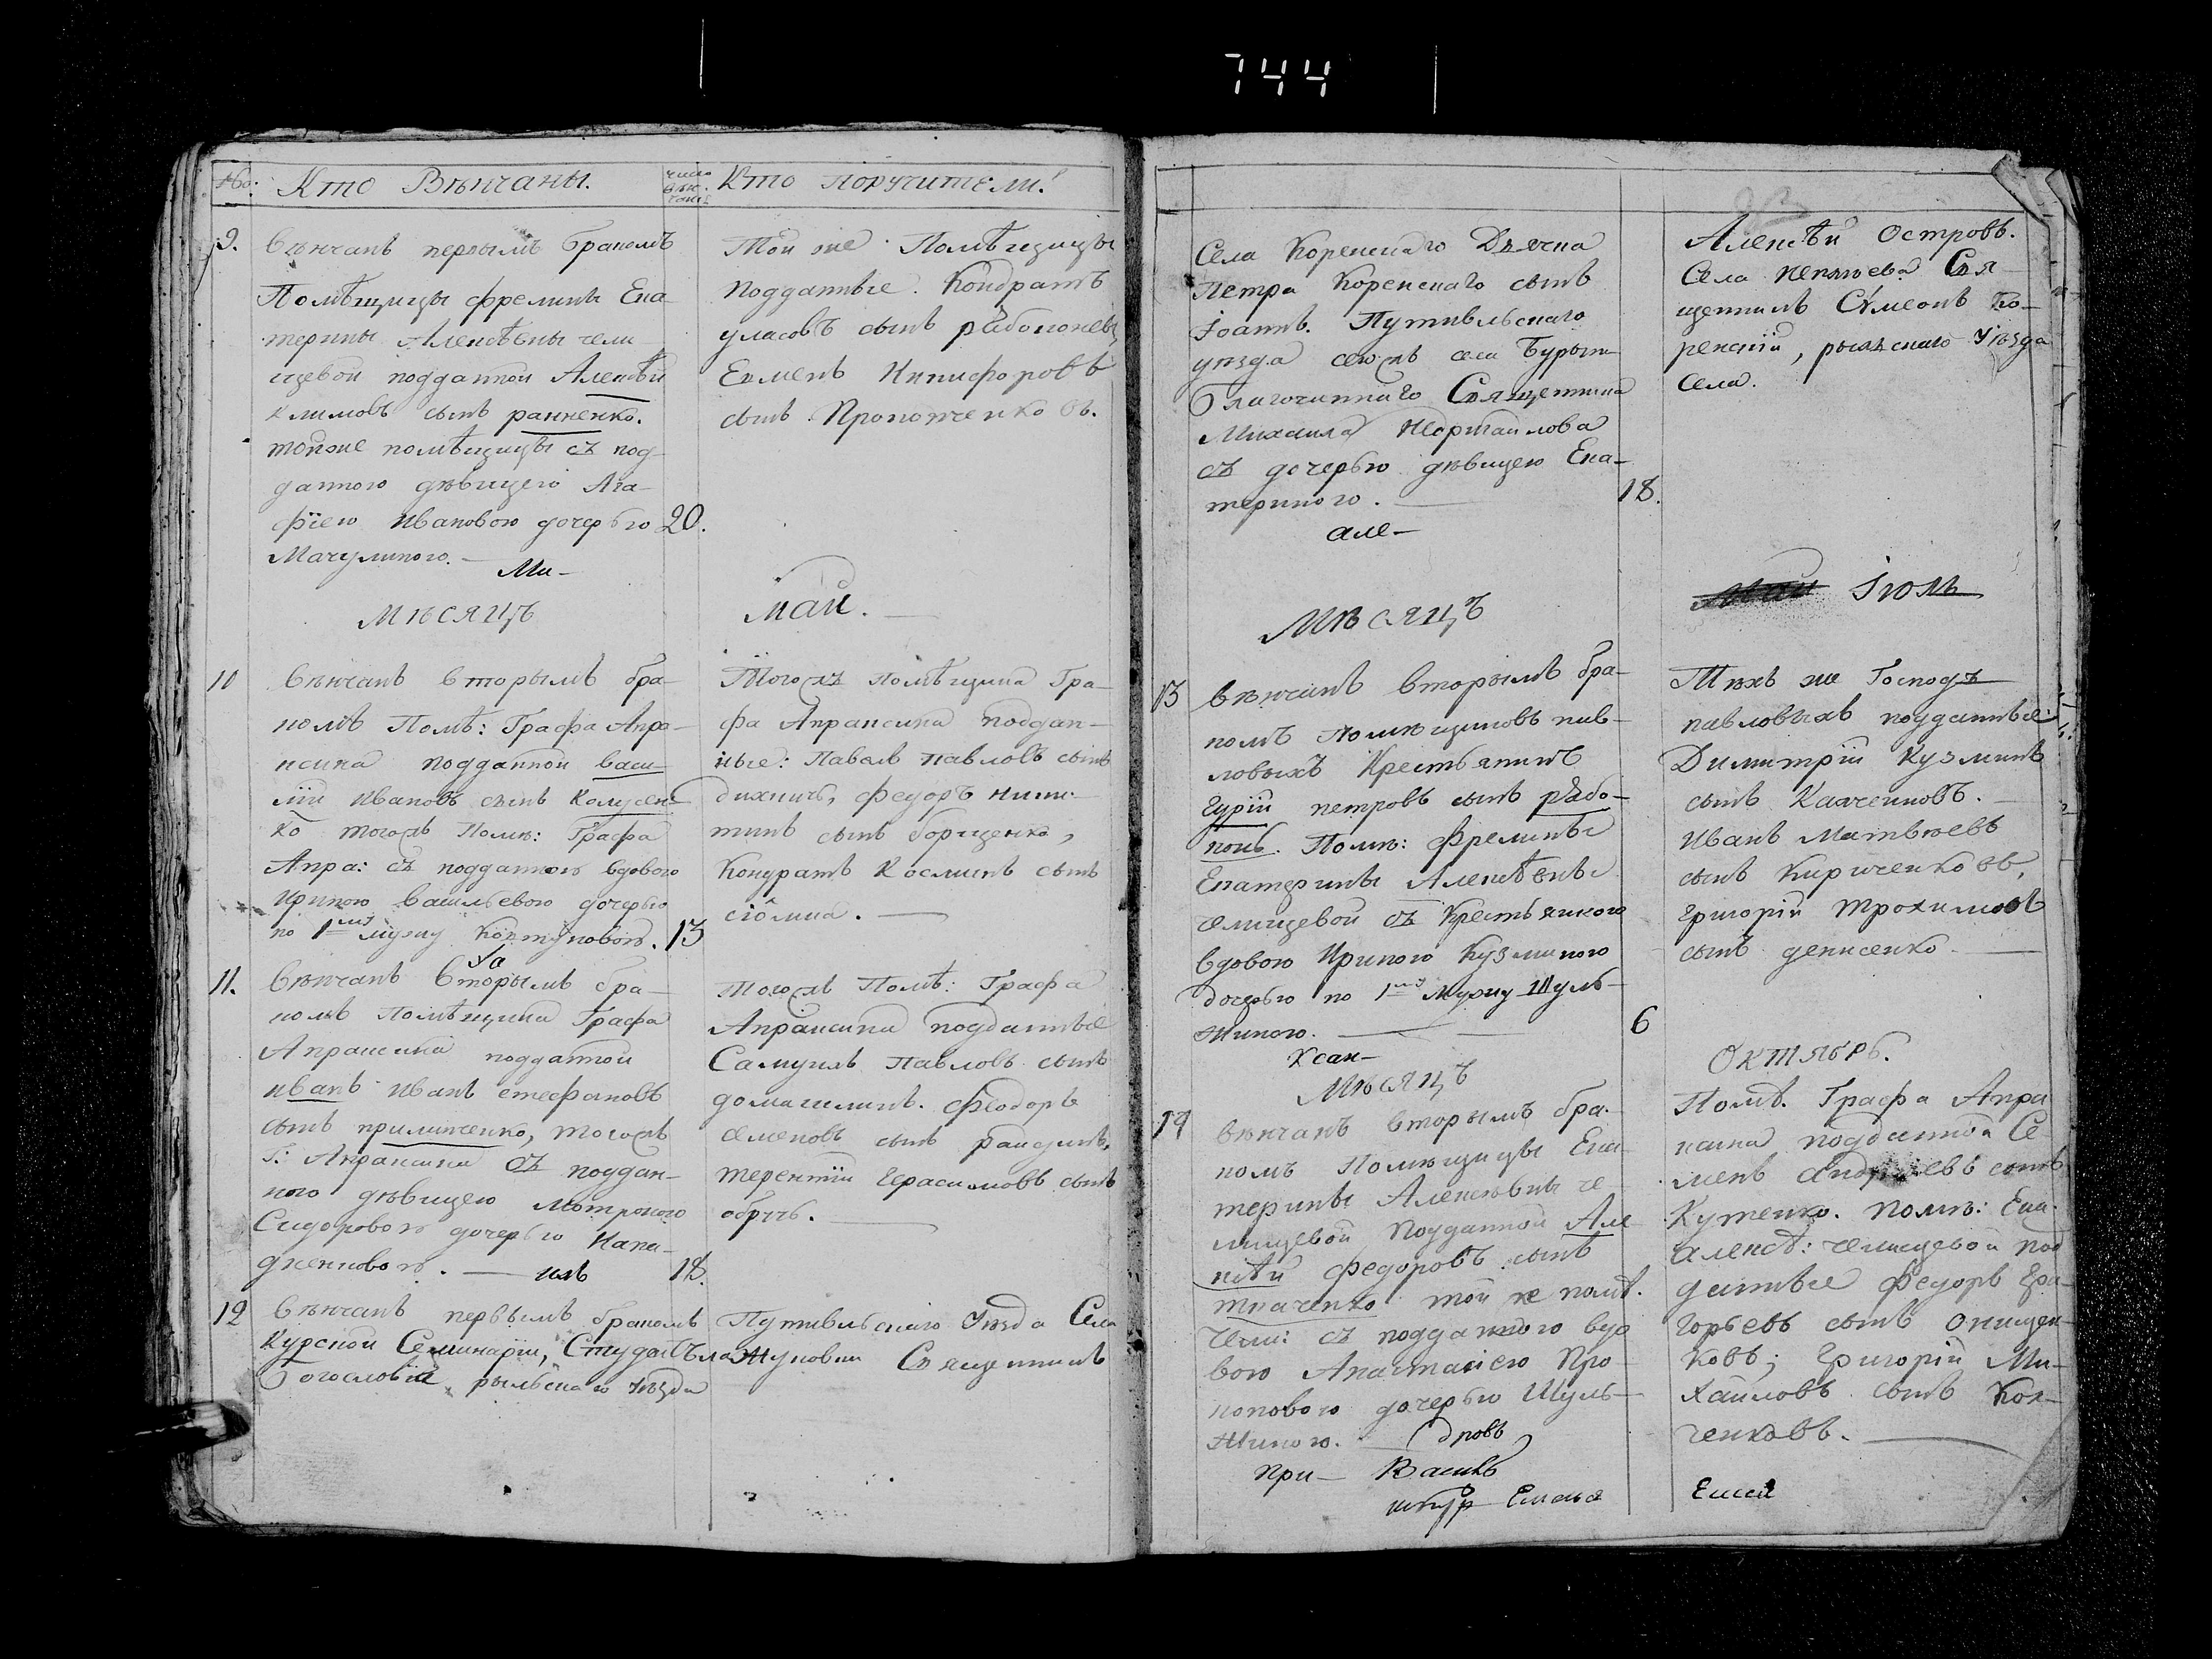 744
№: Кто Вѣнчаны.
число вѣн- чанія
Кто поручители.
9. Вѣнчанъ первымъ бракомъ
Помѣщицы фрелины Ека-
терины Алексѣевны чели-
щевой подданной Алексѣй
климовъ сынъ ранненко.
тойже помѣщицы съ под-
данною дѣвицею Ага-
фіею Ивановою дочерью 20.
Мачулиною. —
Ми-
Той же Помѣщицы
подданные. Кондратъ
уласовъ сынъ рабоконевъ,
Евменъ Никифоровъ
сынъ Прокопченковъ.
Мѣсяцъ
май.
10 Вѣнчанъ вторымъ бра-
комъ Помѣ: Графа Апра-
ксина подданной васи-
лій Ивановъ сынъ
ко тогожъ Помѣ: Графа
Апра: съ подданною вдовою
Ириною васильевою дочерью
по 1му мужу Ковтуновою. 13
Тогожъ помѣщика Гра-
фа Апраксина поддан-
ные: Павелъ павловъ сынъ
дихничъ, федоръ ники-
тинъ сынъ борщенко,
Кондратъ Косминъ сынъ
сіомка. —
11. Вѣнчанъ вторымъ бра-
комъ Помѣщика Графа
Апраксина подданной
иванъ Иванъ стефановъ
сынъ приличенко, тогожъ
Г: Апраксина съ поддан-
ною дѣвицею Мотроною
Сидоровою дочерью Напа-
дненковою. — 18.
Тогожъ Помѣ: Графа
Апраксина подданные
Самуилъ Павловъ сынъ
домашлинъ. Феодоръ
семеновъ сынъ
терентій Герасимовъ сынъ
обручъ.
12 Вѣнчанъ первымъ бракомъ
Курской Семинаріи, Студентъ
Богословіа рыльскаго уѣзда
Путивльскаго Уѣзда Села
Жуковки Священникъ
Села Коренскаго Дьячка
Петра Коренскаго сынъ
Іоаннъ. Путивльскаго
уѣзда села Бурыни
Благочиннаго Священника
Михаила
съ дочерью дѣвицею Ека-
териною. — 18.
але-
Алексѣй Островъ.
Села Священникъ Сѵмеонъ Ко-
ренскій, рыльскаго Уѣзда
Села.
Мѣсяцъ
Май Іюль
13 Вѣнчанъ вторымъ бра-
комъ помѣщиковъ пав-
ловыхъ Крестьянинъ
Гурій петровъ сынъ рабо-
конь. Помѣ: Фрелины
Екатерины Алексѣевны
челищевой съ Крестьянкою
вдовою Ириною Кузминою
дочерью по 1му мужу Шуль-
жиною. — 6
Ксан-
Тѣхъ же Господъ
павловыхъ подданные:
Димитрій Кузминъ
сынъ Калченковъ.
Иванъ Матвѣевъ
сынъ Кириченковъ,
григорій трохимовъ
сынъ денисенко —
Мѣсяцъ
Октябрь.
14 Вѣнчанъ вторымъ бра-
комъ Помѣщицы Ека-
терины Алексѣевны че-
лищевой Подданной Але-
ксѣй федоровъ сынъ
ткаченко той же помѣ.
Чели: съ подданною вдо-
вою Анастасіею Про-
коповою дочерью Шуль-
жиною. —
дровъ
При-
Помѣ. Графа Апра-
ксина подданной Се-
менъ Андреевъ сынъ
Кутенко. помѣ: Ека.
Алексѣ: челищевой под-
данные федоръ Гри-
горьевъ сынъ онищен-
ковъ; Григорій Ми-
хайловъ сынъ Кол-
ченковъ. —